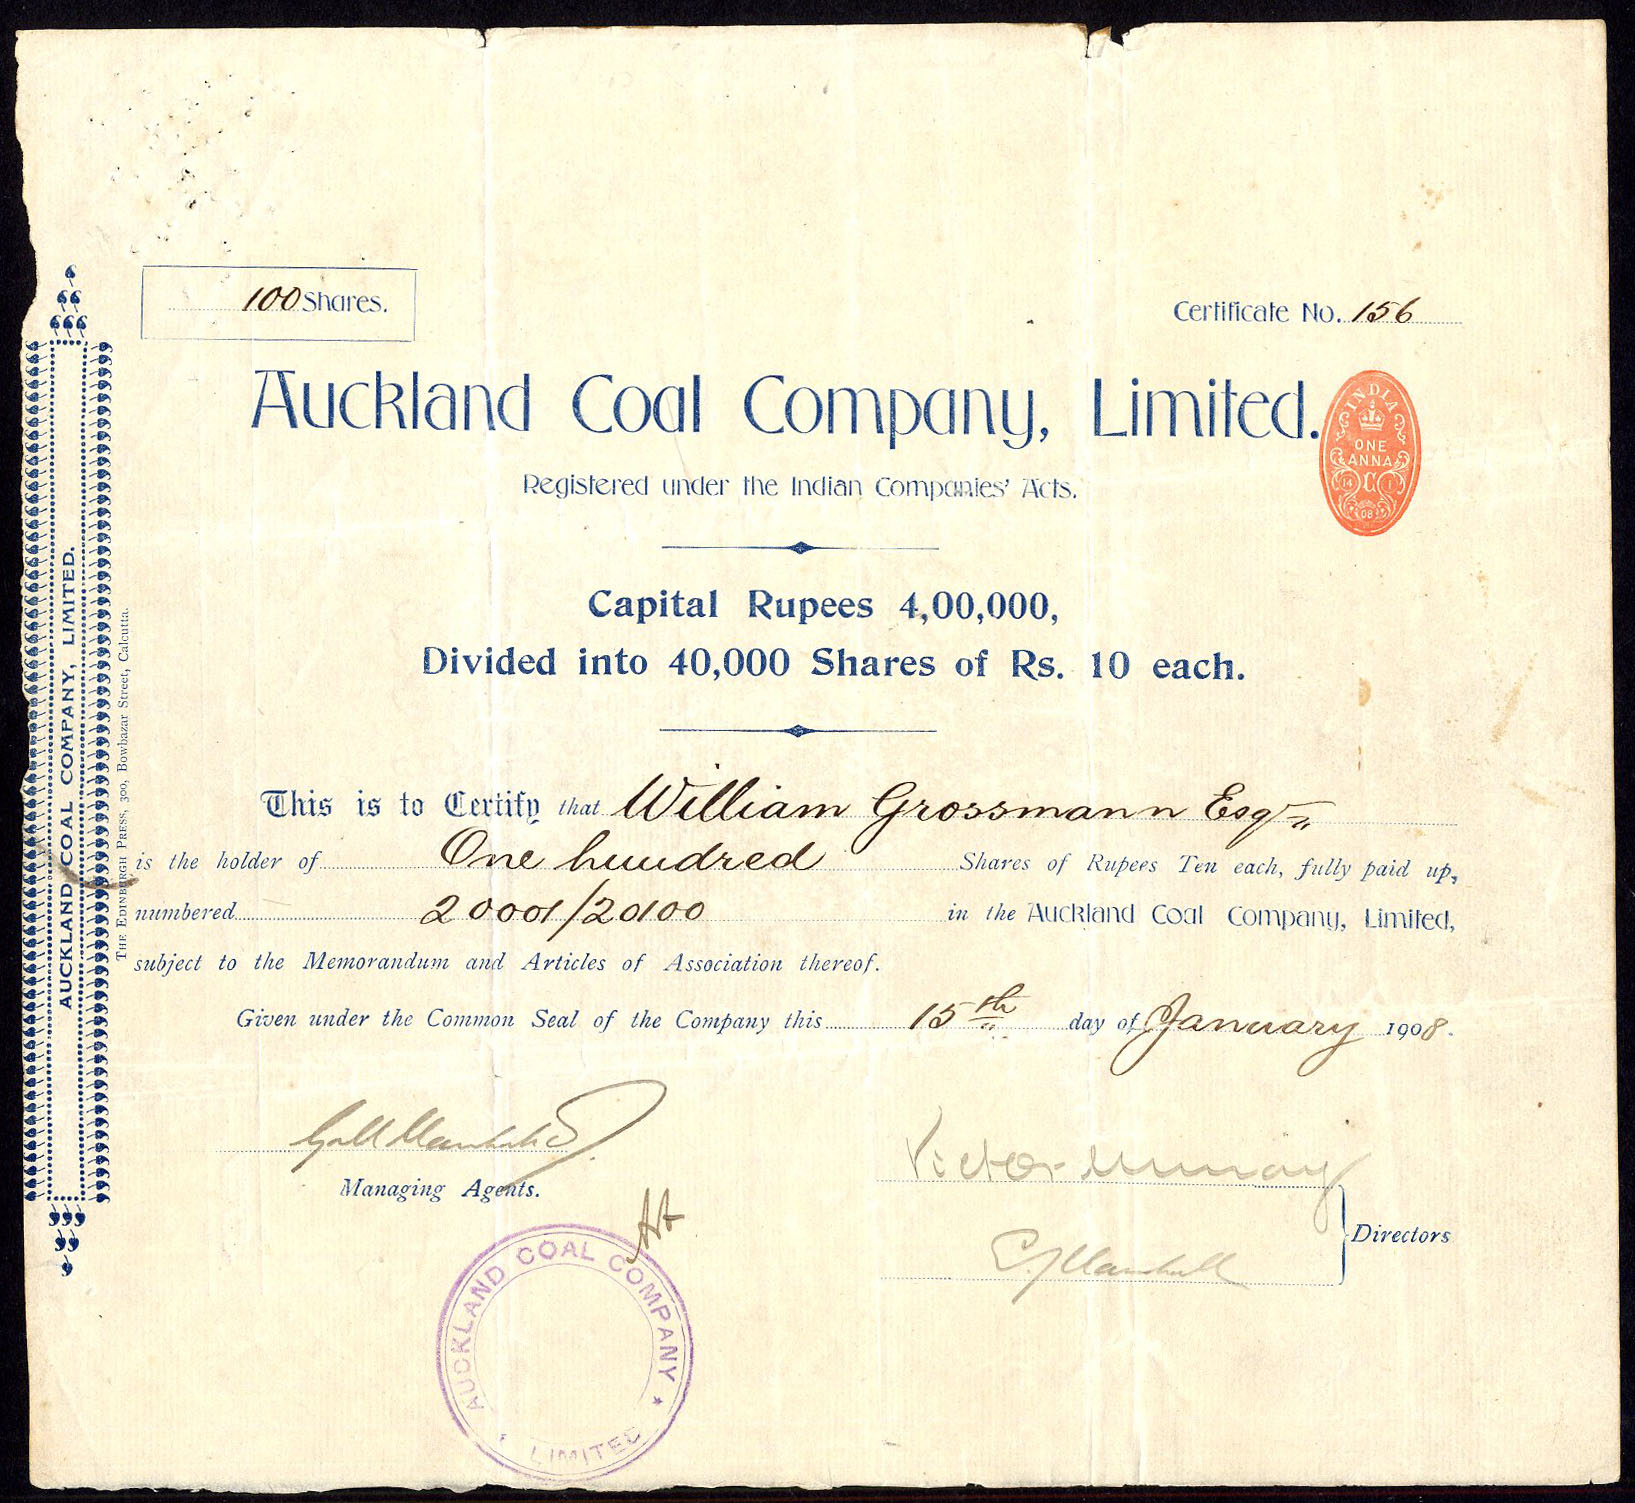 100 Shares.
Certificate No. 156
Auckland Coal Company, Limited.
INDIA
ONE
ANNA
14 C 1
08
Registered under the Indian Companies' Acts.
Capital Rupees 4,00,000,
Divided into 40,000 Shares of Rs. 10 each.
This is to Certify that William Grossmann Esqr
is the holder of One hundred Shares of Rupees Ten each, fully paid up,
numbered 20001/20100 in the Auckland Coal Company, Limited,
subject to the Memorandum and Articles of Association thereof.
Given under the Common Seal of the Company this 15th day of January 1908.
Managing Agents.
Victor Murray
Directors
AUCKLAND COAL COMPANY
LIMITED
AUCKLAND COAL COMPANY, LIMITED.
THE EDINBURGH PRESS, 300, Bowbazar Street, Calcutta.